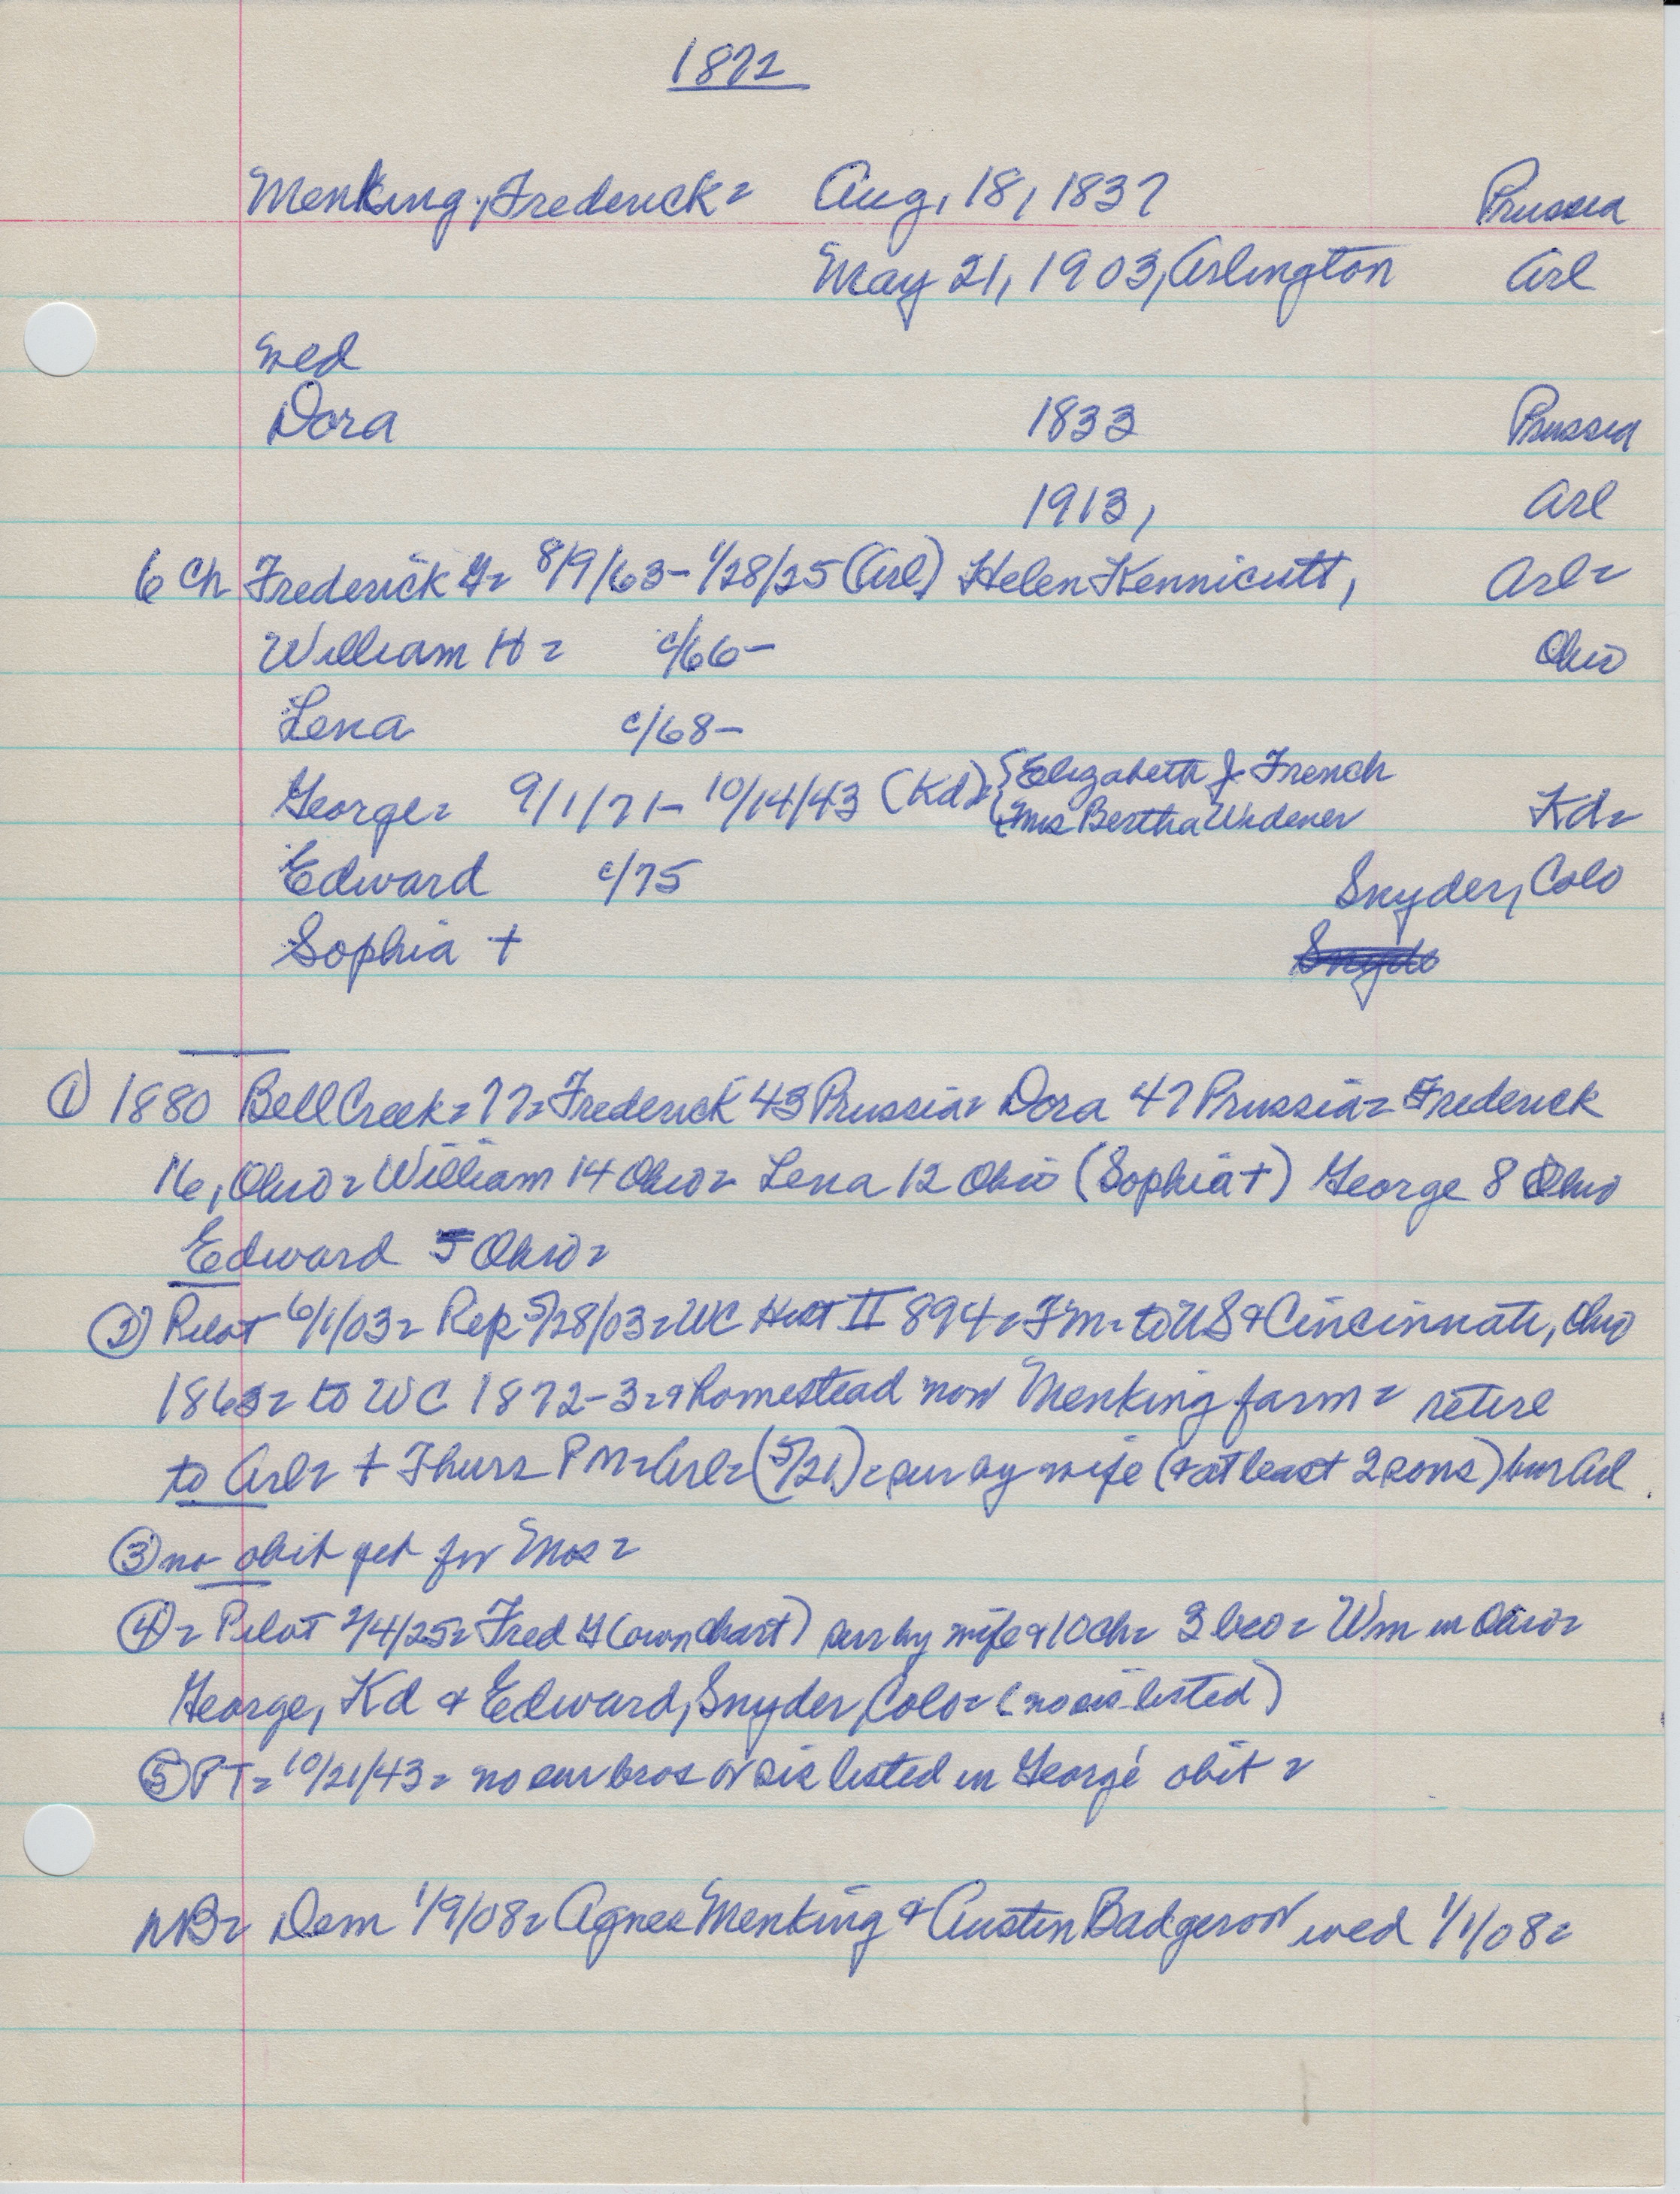 1872
Menking, Frederick = Aug, 18, 1837 Prussia
May 21, 1903, Arlington Arl
wed
Dora 1833 Prussia
1913, Arl
6 Ch Frederick G= 8/9/63 - 1/28/25 (Arl) Helen Kennicutt, Arl=
William H = c/66 - Ohio
Lena c/68 -
George = 9/1/71 - 10/14/43 (Kd) = { Elizabeth J. French
{ Mrs Bertha Widener Kd=
Edward c/75 Snyder, Colo
Sophia +
① 1880 Bell Creek = 77 = Frederick 43 Prussia = Dora 47 Prussia = Frederick
16, Ohio = William 14 Ohio = Lena 12 Ohio (Sophia +) George 8 Ohio
Edward 5 Ohio =
② Pilot 6/1/03 = Rep 5/28/03 = WC Hist II 894 = Fm = to US & Cincinnati, Ohio
1863 = to WC 1872-3 = & homestead now Menking farm = retire
to Arl = + Thurs PM = Arl = (5/21) = sur by wife (& at least 2 sons) bur Arl
③ no obit yet for Mrs =
④ = Pilot 2/4/25 = Fred G (own chart) sur by wife & 10 ch = 3 bro = Wm in Ohio =
George, Kd & Edward, Snyder, Colo = (no sis listed)
⑤ PT = 10/21/43 = no sur bros or sis listed in George' obit =
NB = Dem 1/9/08 = Agnes Menking & Austin Badgerow wed 1/1/08 =